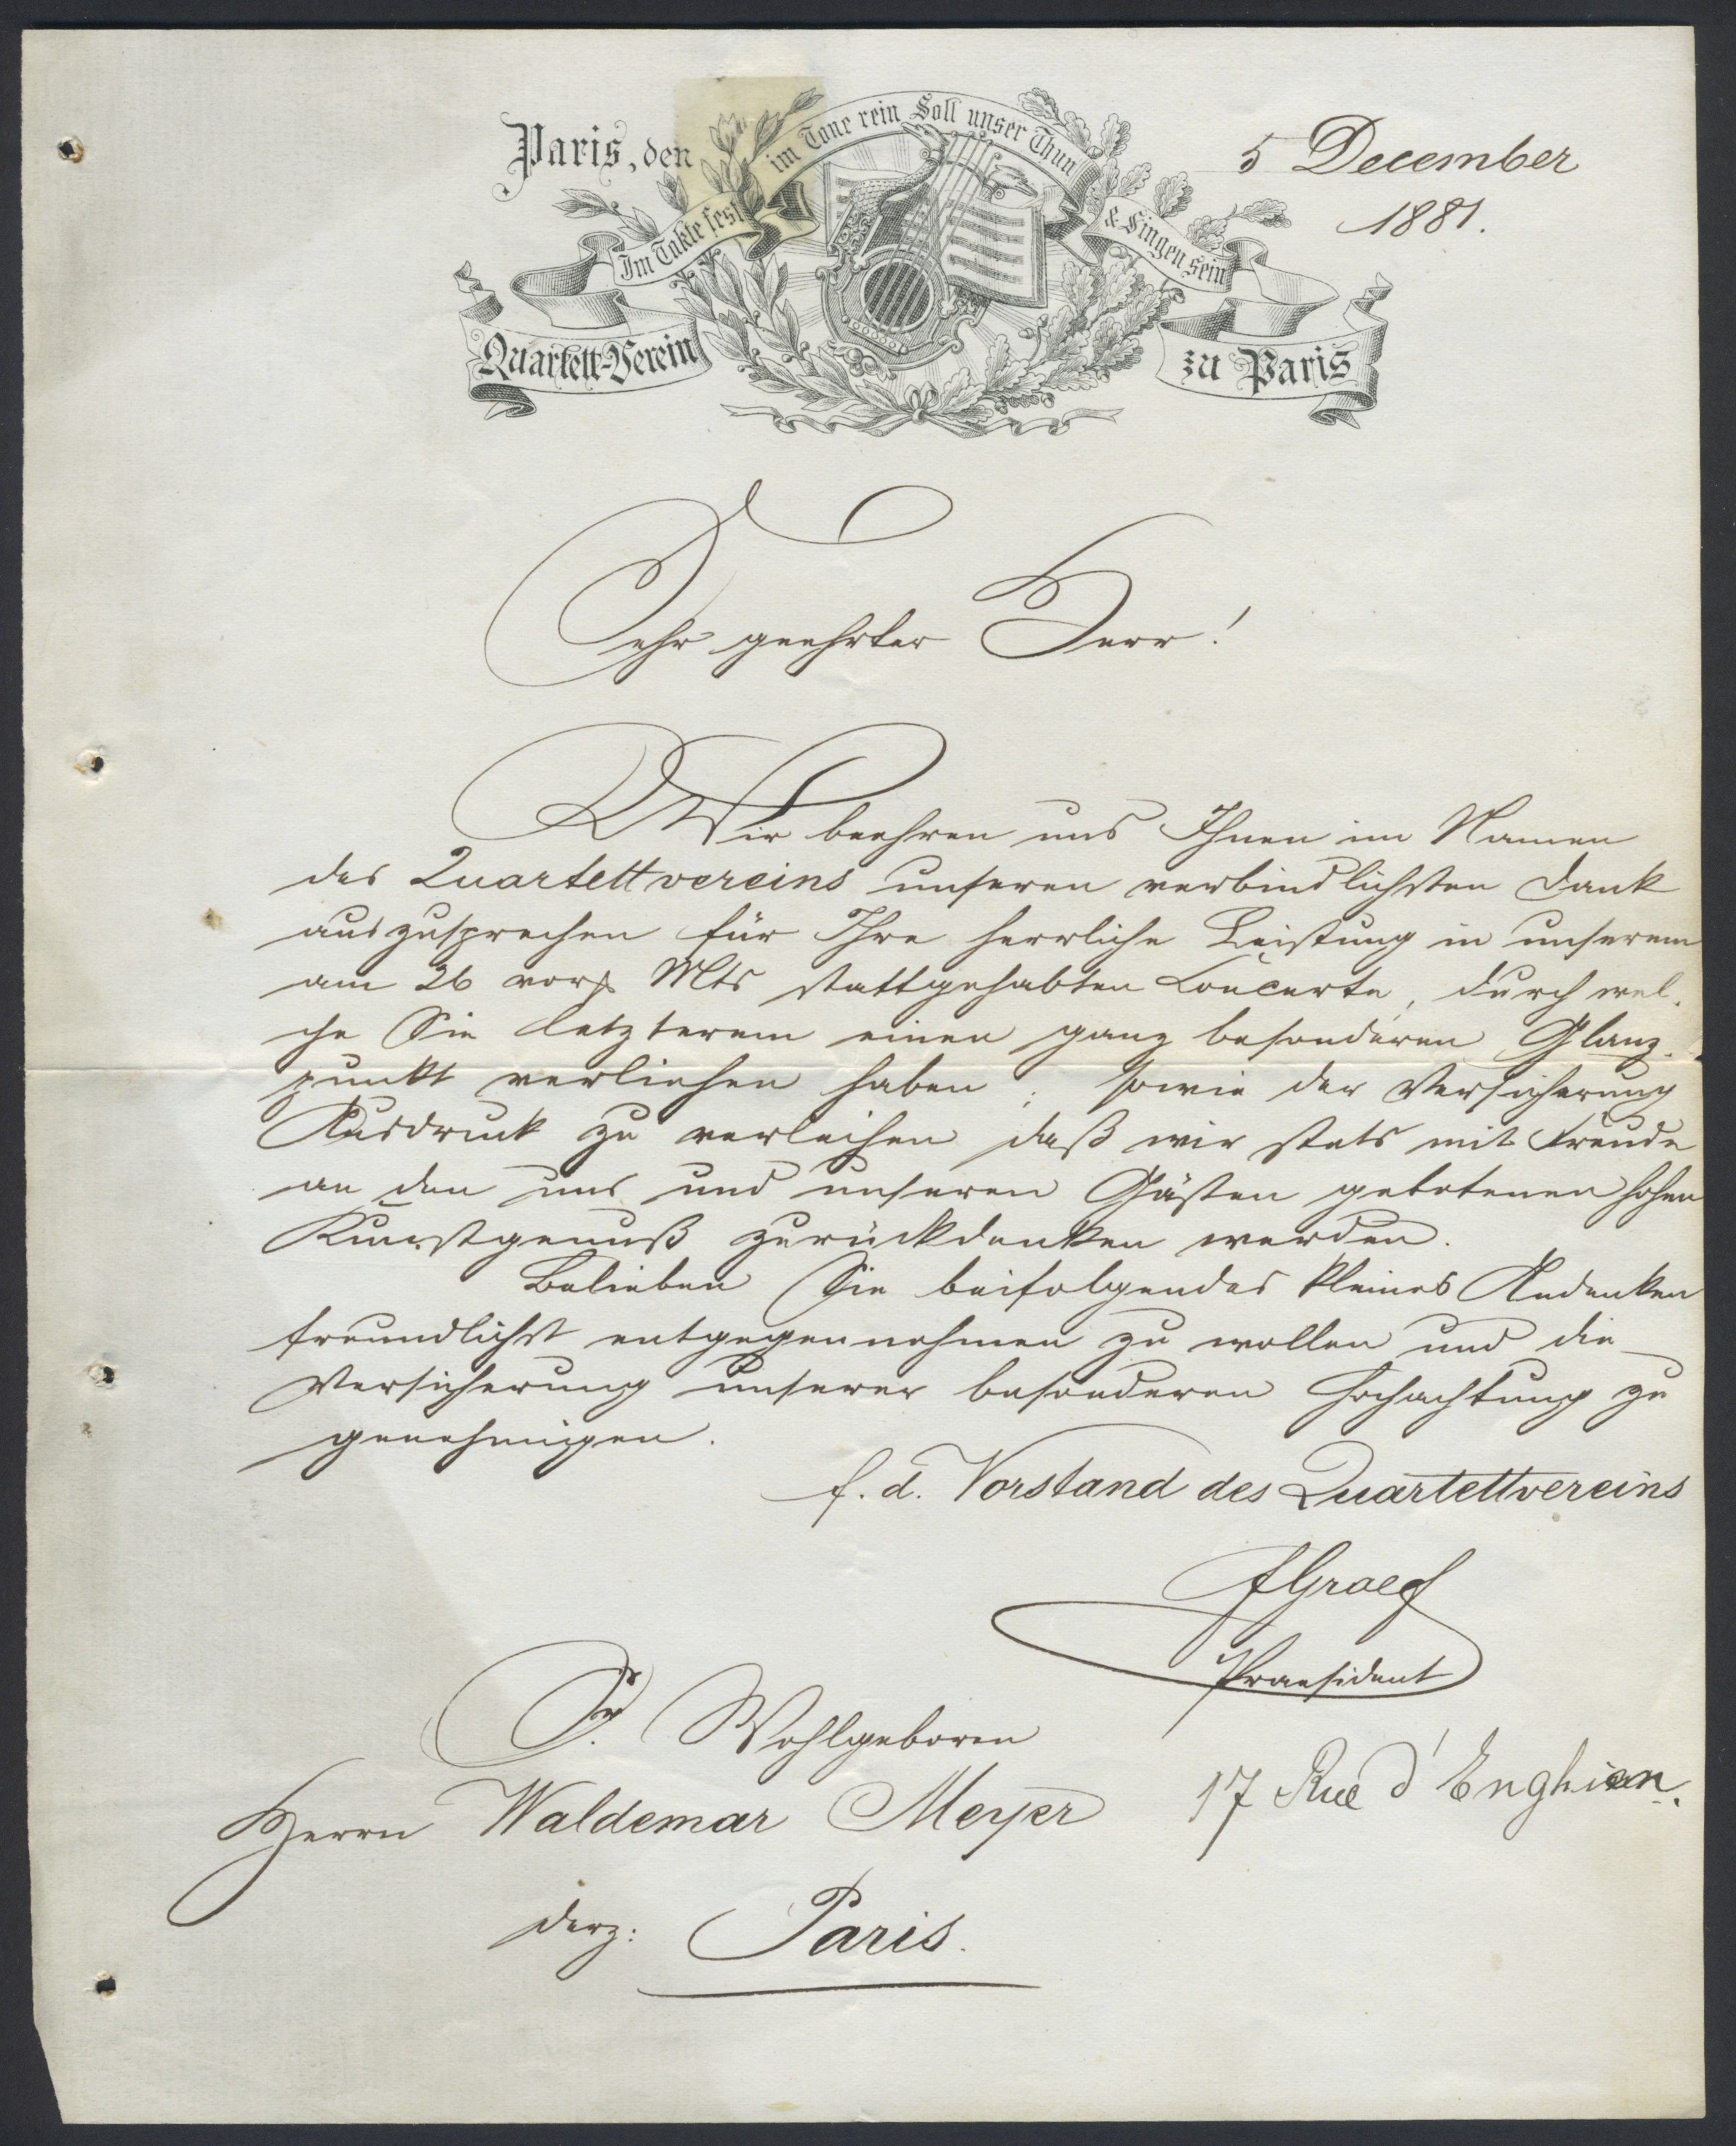 Paris, den 5 December
1881.
Im Takte fest im Tone rein Soll unser Thun & Singen sein
Quartett-Verein zu Paris
Sehr geehrter Herr!
Wir beehren uns Ihnen im Namen
des Quartettvereins unseren verbindlichsten Dank
auszusprechen für Ihre herrliche Leistung in unserem
am 26 vor. Mts stattgehabten Concerte, durch wel-
che Sie letzterem einen ganz besonderen Glanz-
punkt verliehen haben; sowie der Versicherung
Ausdruck zu verleihen daß wir stets mit Freude
an den uns und unseren Gästen gebotenen hohen
Kunstgenuß zurückdenken werden.
Belieben Sie beifolgendes kleines Andenken
freundlichst entgegennehmen zu wollen und die
Versicherung unserer besonderen Hochachtung zu
genehmigen.
f. d. Vorstand des Quartettvereins
Praesident
Sr. Wohlgeboren
Herrn Waldemar Meyer
17 Rue d'Enghien.
derz: Paris.